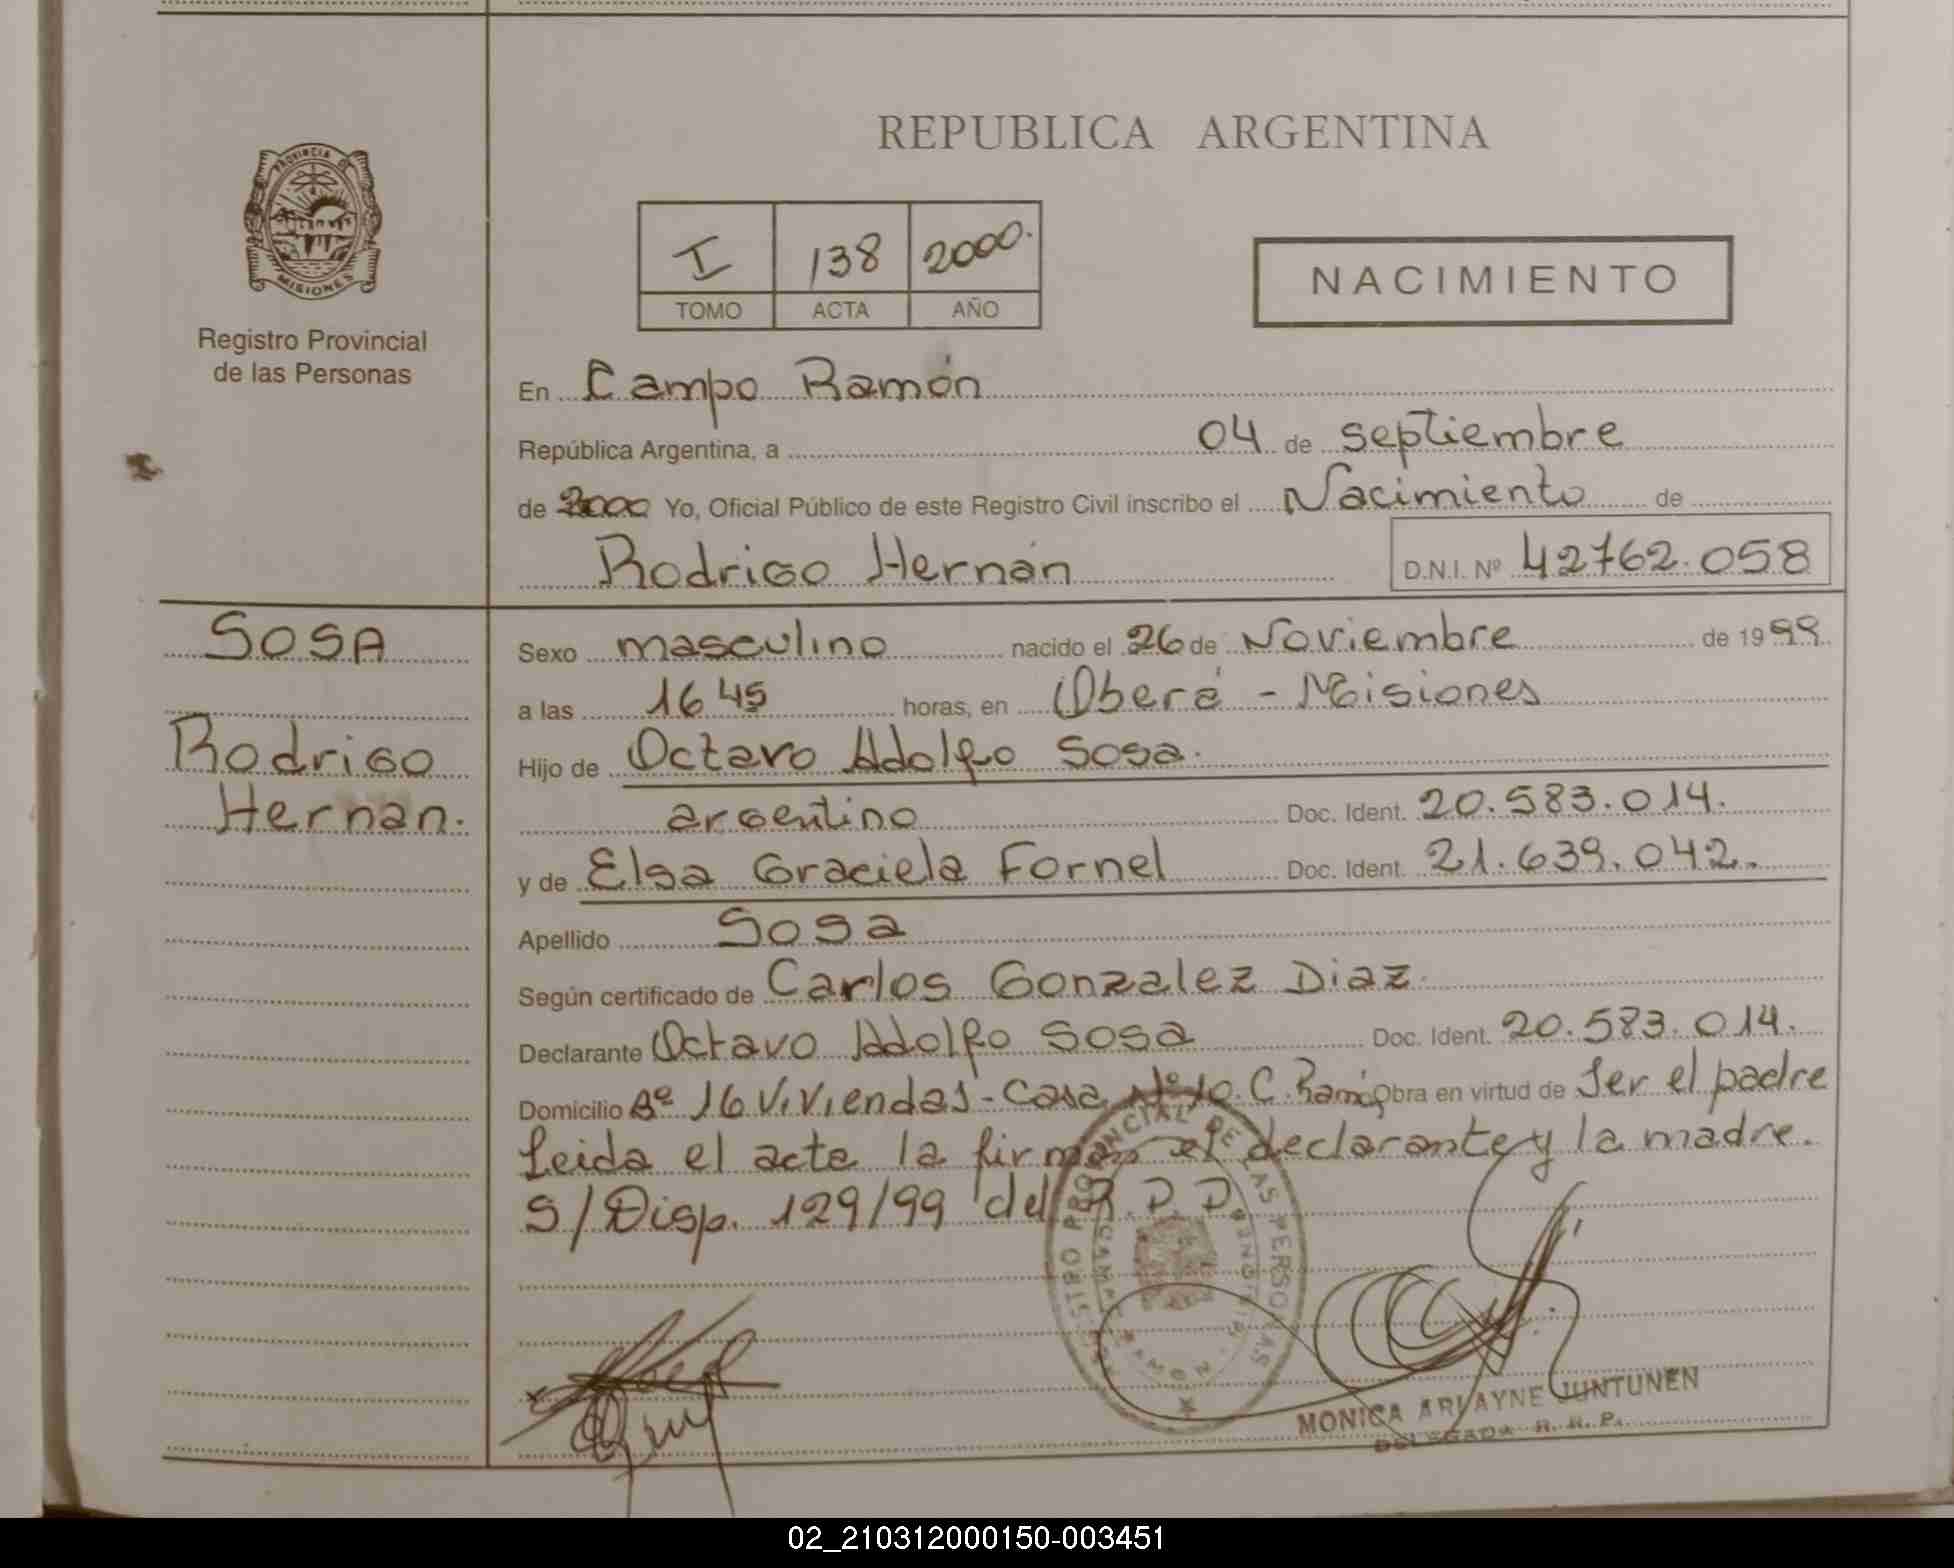 REPUBLICA ARGENTINA
PROVINCIA DE
MISIONES
Registro Provincial
de las Personas
I 138 2000.
TOMO ACTA AÑO
NACIMIENTO
En Campo Ramón
República Argentina, a 04 de septiembre
de 2000 Yo, Oficial Público de este Registro Civil inscribo el Nacimiento de
Rodrigo Hernán D.N.I. Nº 42762.058
SOSA
Rodrigo
Hernan.
Sexo masculino nacido el 26 de Noviembre de 1999
a las 16 45 horas, en Oberá - Misiones
Hijo de Octavo Adolfo Sosa.
argentino Doc. Ident. 20.583.014.
y de Elsa Graciela Fornel Doc. Ident. 21.639.042.
Apellido Sosa
Según certificado de Carlos Gonzalez Diaz.
Declarante Octavo Adolfo Sosa Doc. Ident. 20.583.014.
Domicilio Bº 16 Viviendas - Casa Nº 10. C. Ramón Obra en virtud de Ser el padre
Leida el acta la firman el declarante y la madre.
S/Disp. 129/99 del R.P.P.
REGISTRO PROVINCIAL DE LAS PERSONAS
MONICA ARLAYNE JUNTUNEN
DELEGADA R. R. P.
02_210312000150-003451